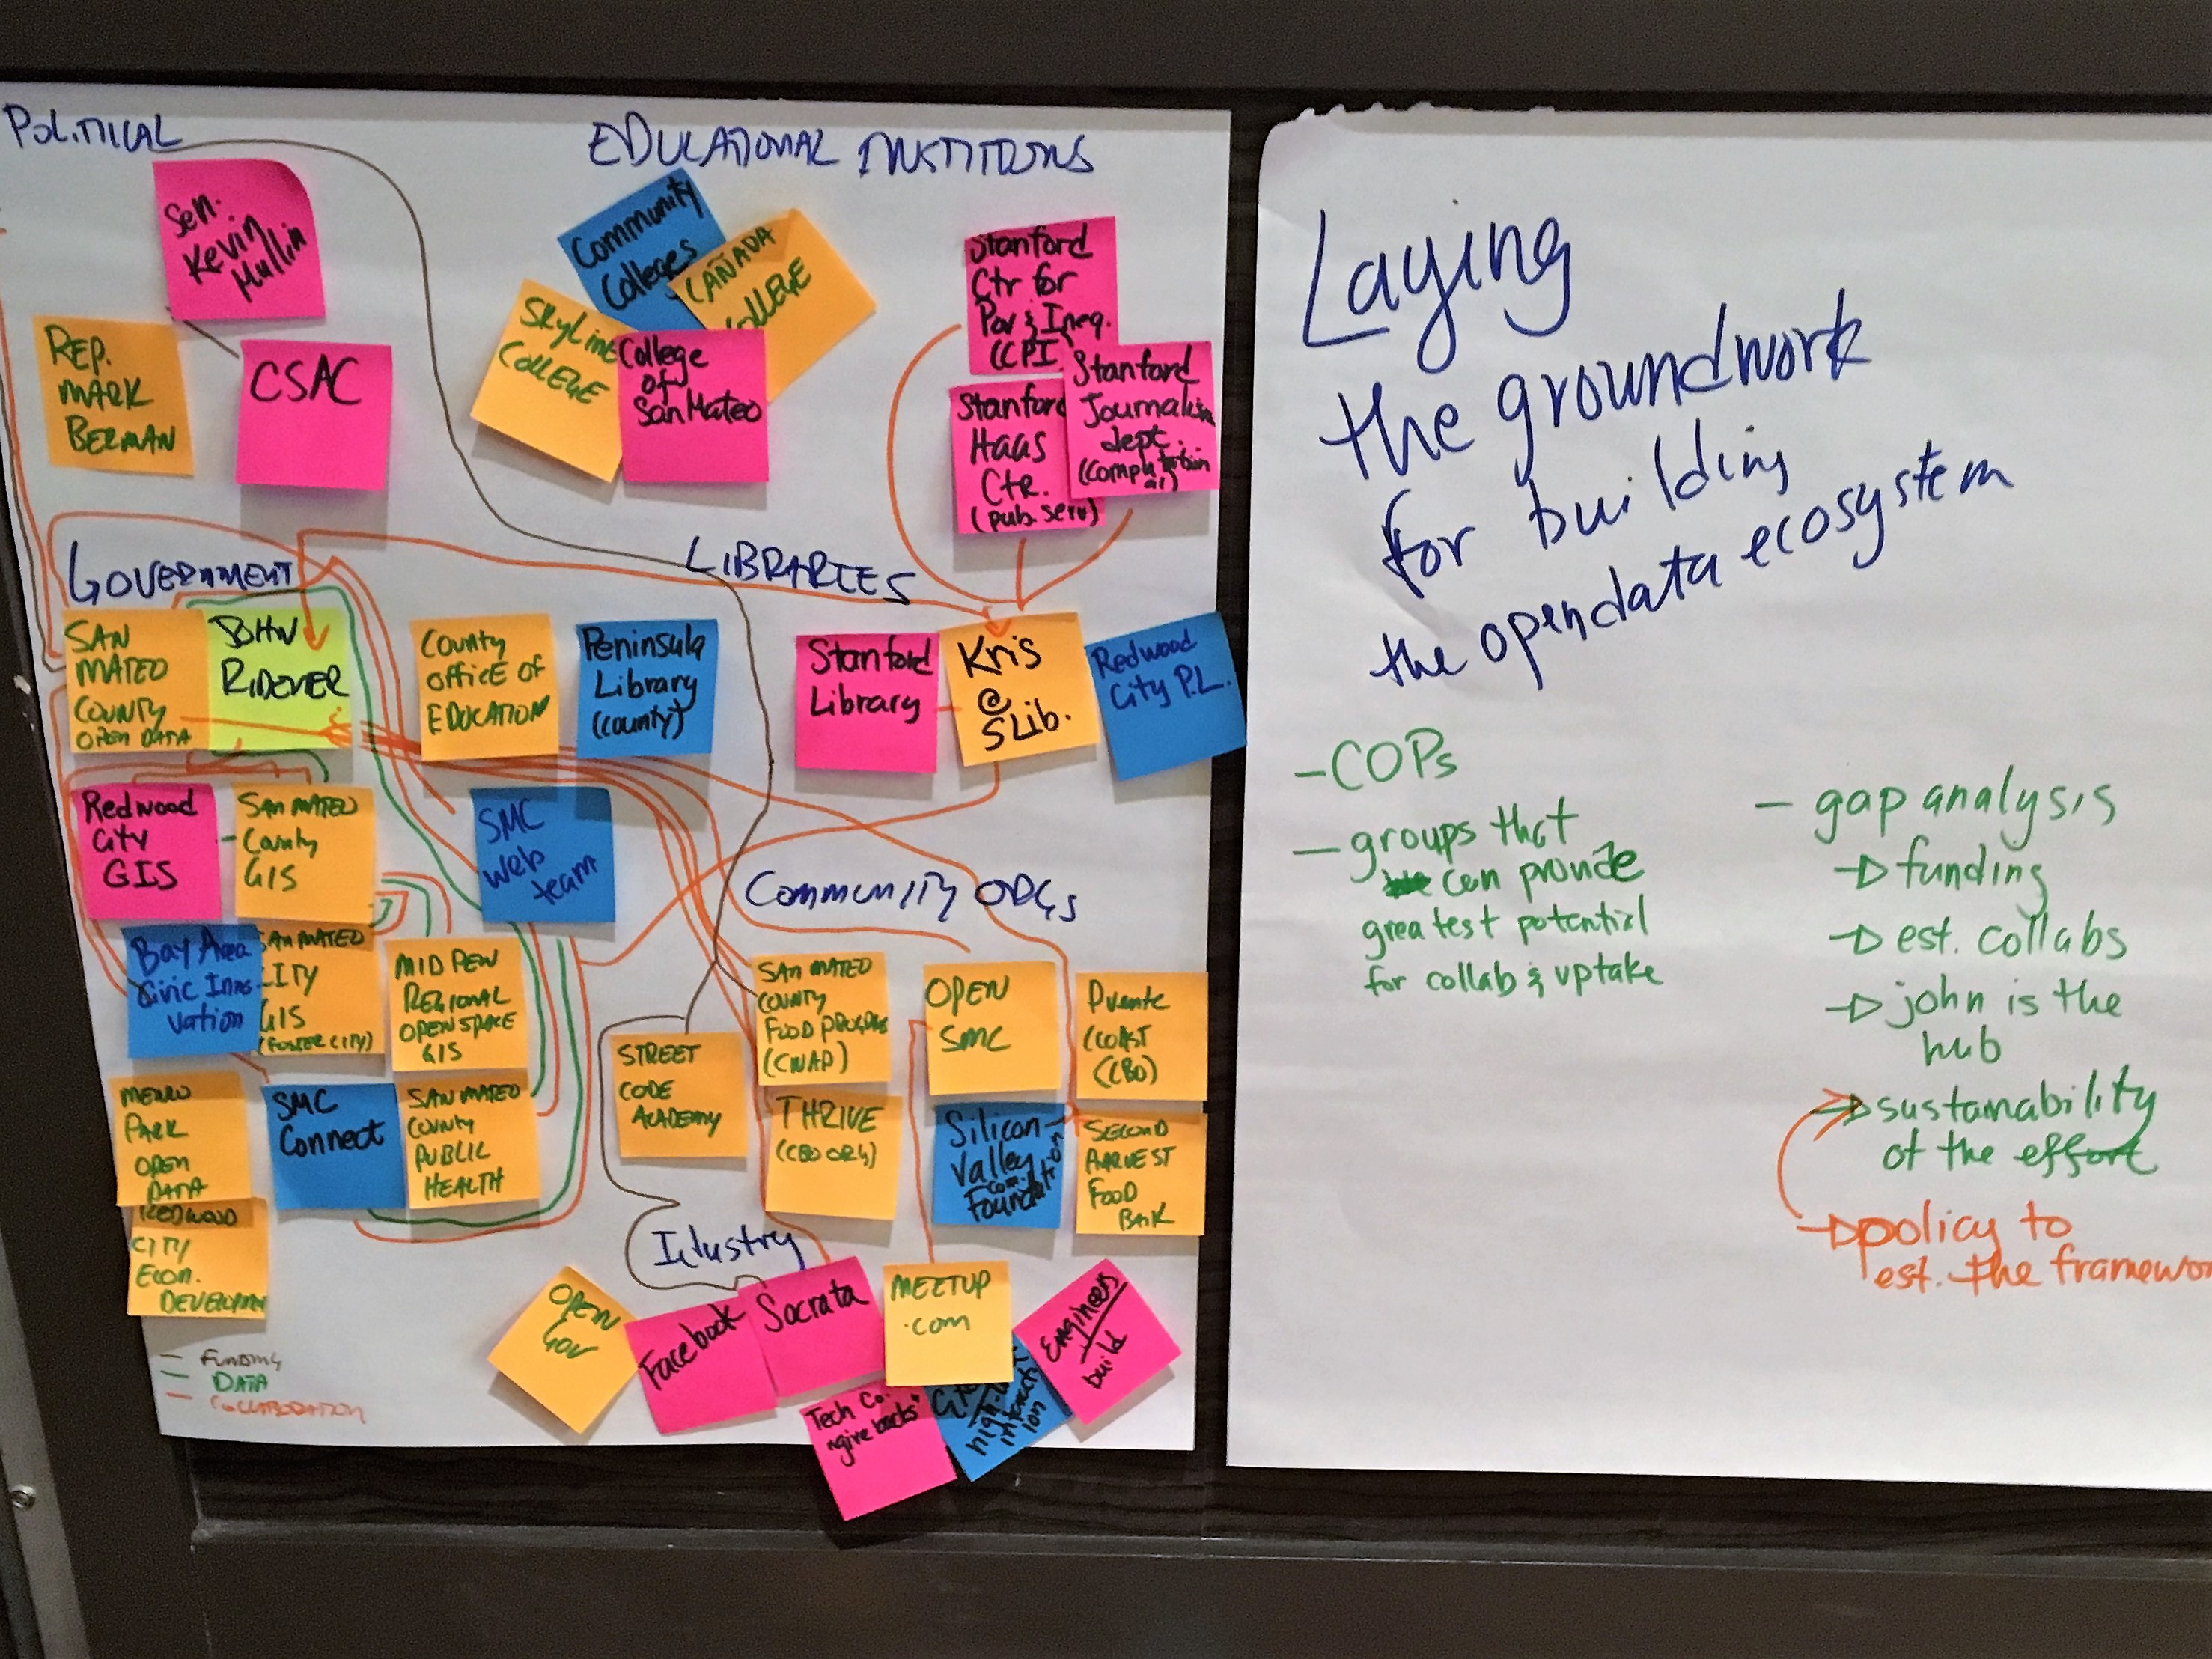 POLITICAL
Sen.
Kevin
Mullin
REP.
MARK
BERMAN
CSAC
EDUCATIONAL INSTITUTIONS
Community
Colleges
CAÑADA
COLLEGE
SKYLINE
COLLEGE
College
of
San Mateo
Stanford
Ctr for
Pov & Ineq.
(CPI
Stanford
Haas
Ctr.
(pub. serv)
Stanford
Journalism
dept.
(computation
al)
GOVERNMENT
SAN
MATEO
COUNTY
OPEN DATA
County
OFFICE OF
EDUCATION
LIBRARIES
Peninsula
Library
(county)
Stanford
Library
Kris
@
SLib.
Redwood
City P.L.
Redwood
City
GIS
SAN MATEO
County
GIS
SMC
web
team
Bay Area
Civic Inno
vation
SAN MATEO
CITY
GIS
(FOSTER CITY)
MID PEN
REGIONAL
OPEN SPACE
GIS
MENLO
PARK
OPEN
DATA
SMC
Connect
SAN MATEO
COUNTY
PUBLIC
HEALTH
REDWOOD
CITY
ECON.
DEVELOPMEN
COMMUNITY ORGS
STREET
CODE
ACADEMY
SAN MATEO
COUNTY
FOOD PROGRAM
(CNAP)
OPEN
SMC
Puente
(COAST
(CBO)
THRIVE
(CBO ORG)
Silicon
Valley
Com.
Foundation
SECOND
HARVEST
FOOD
BANK
Industry
OPEN
GOV
Facebook
Socrata
MEETUP
.com
Engineers
build
Tech Co.
"give backs"
— FUNDING
— DATA
— COLLABORATION
Laying
the groundwork
for building
the opendata ecosystem
– COPs
– groups that
can provide
greatest potential
for collab & uptake
– gap analysis
→ funding
→ est. collabs
→ john is the
hub
→ sustainability
of the effort
→ policy to
est. the framewor